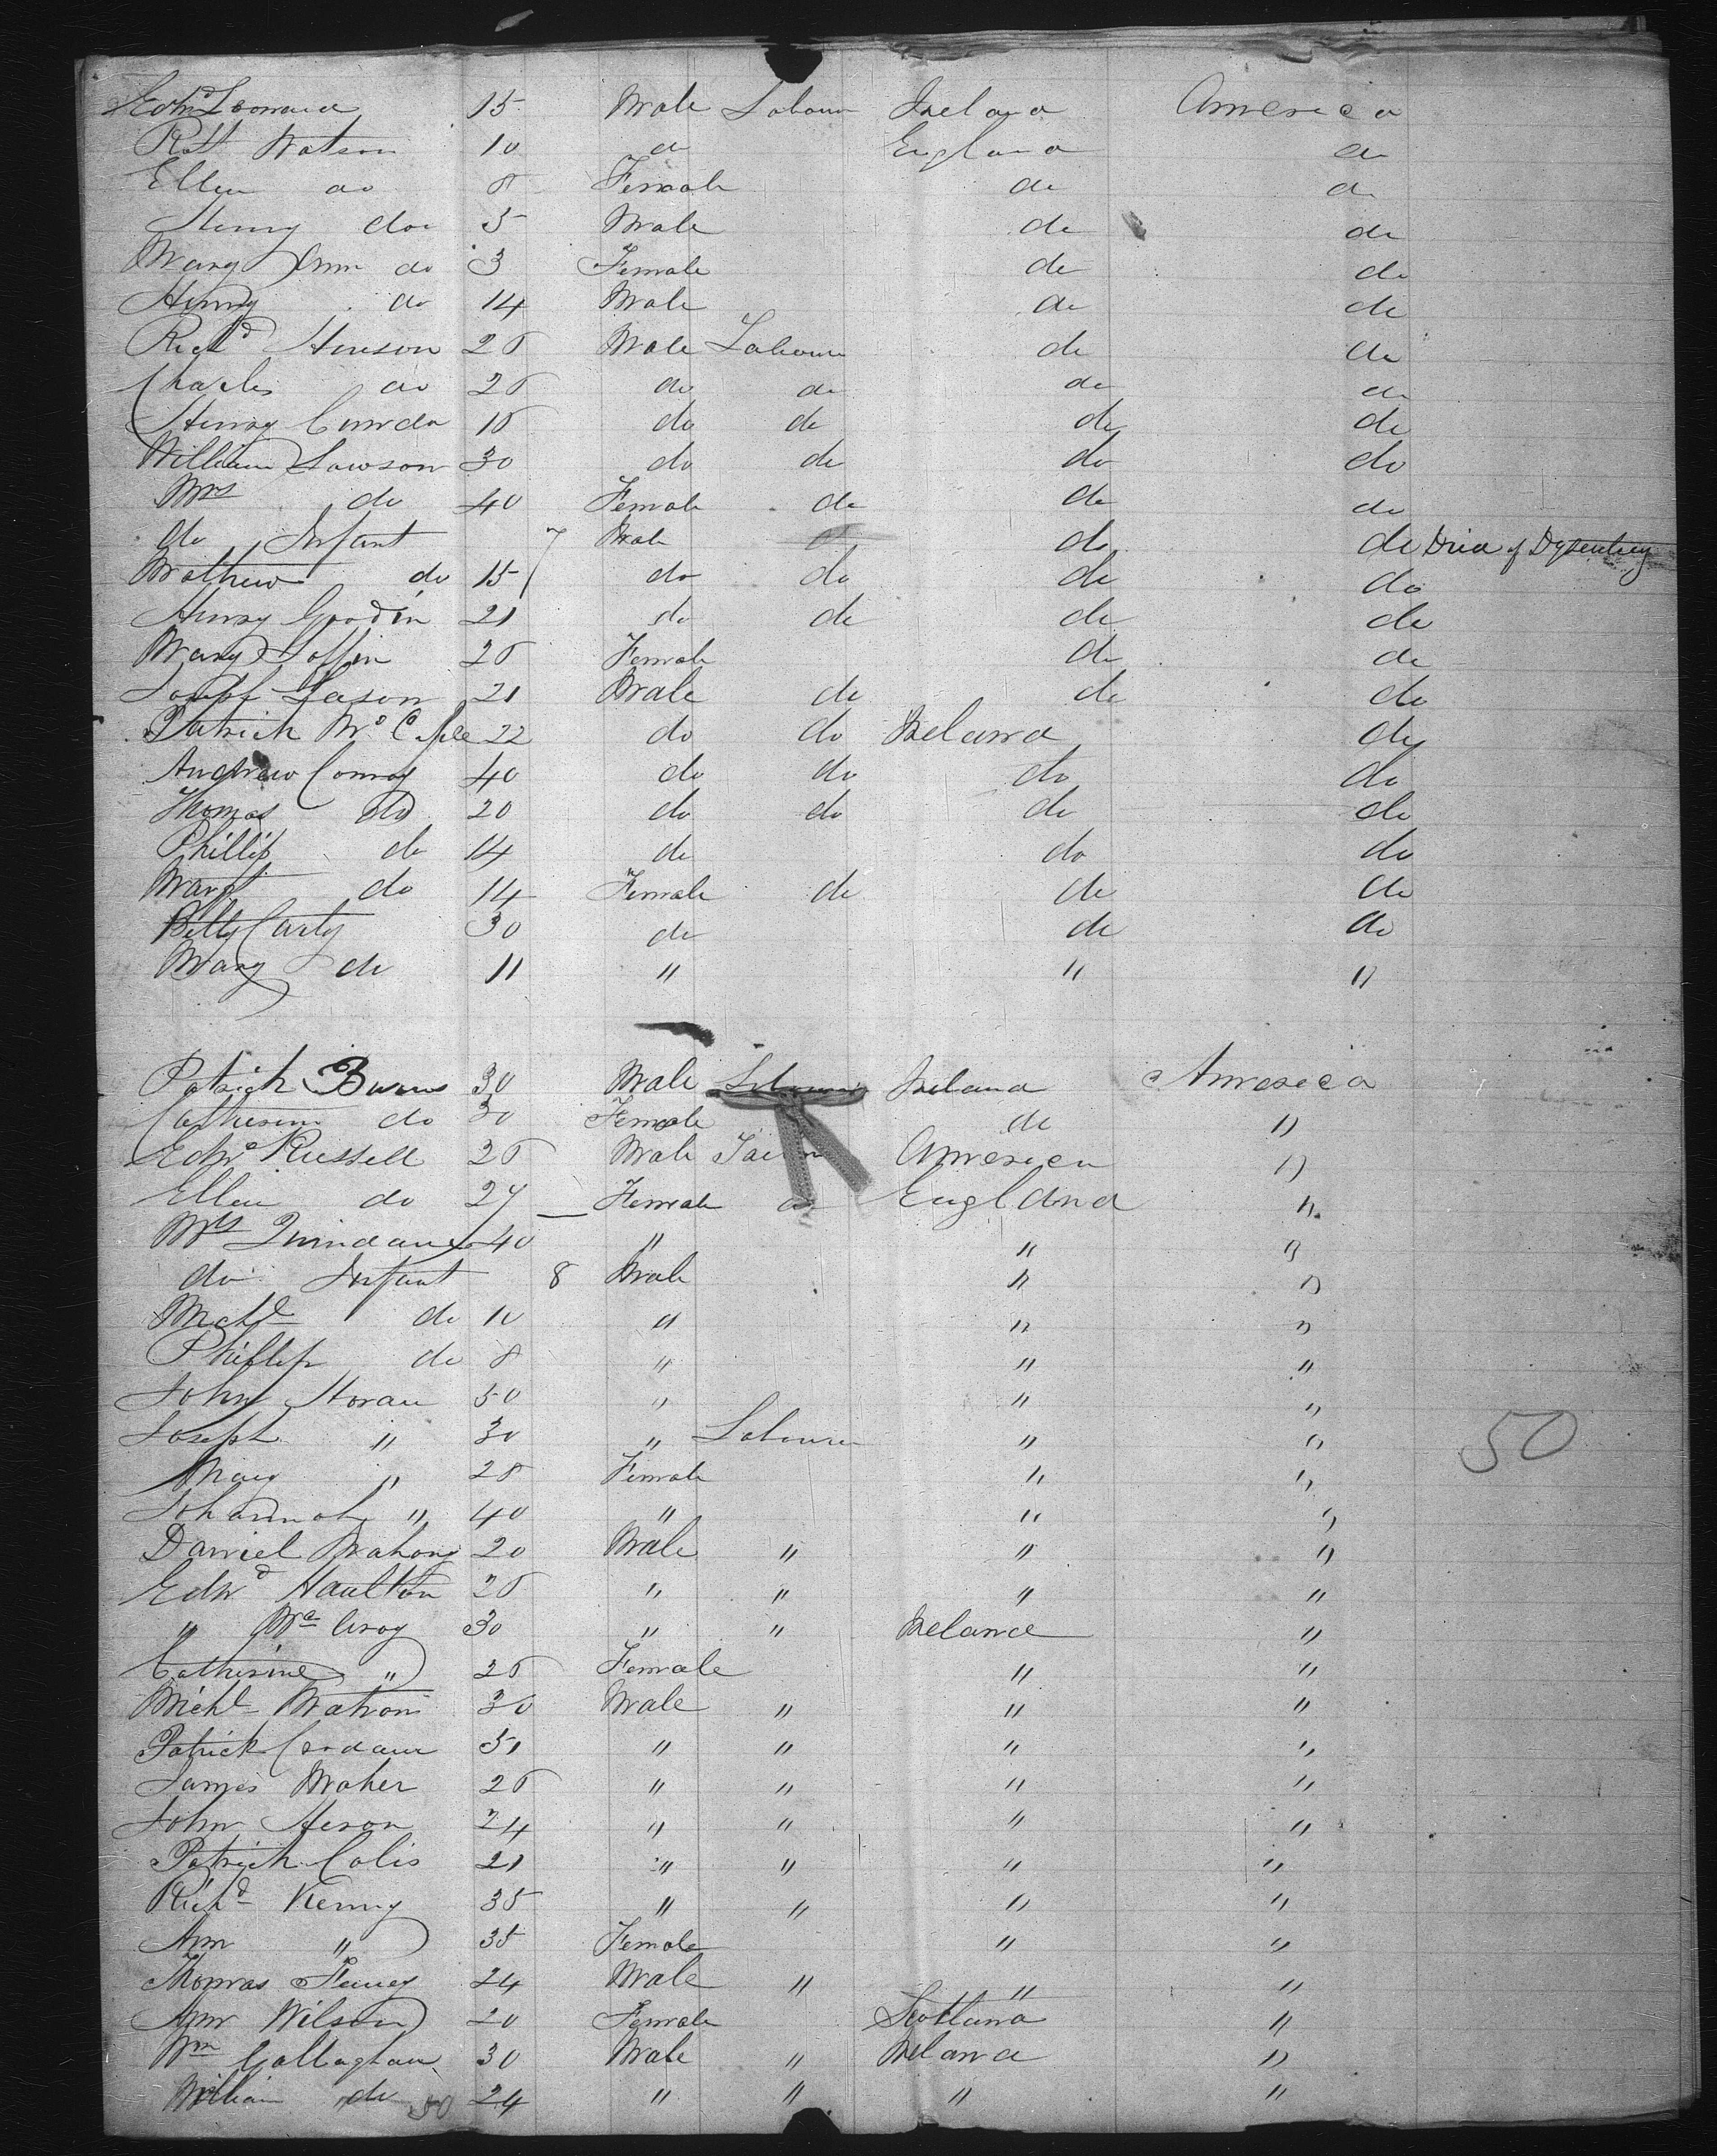 Edwd Leonard 15 Male Labour Ireland America
Robt Watson 10 do England do
Ellen do 8 Female do do
Henry do 5 Male do do
Mary Ann do 3 Female do do
Henry do 14 Male do do
Richd Hinson 26 Male Labour do do
Charles do 26 do do do do
Henry 18 do do do do
William Lawson 30 do do do do
Mrs do 40 Female do do do
do Infant 7 Male do do do Died of Dysentery
Mathew do 15 do do do do
Henry Goodin 21 do do do do
Mary Loffin 26 Female do do
Joseph Eason 21 Male do do do
Patrick Mc 22 do do Ireland do
Andrew Conroy 40 do do do do
Thomas do 20 do do do do
Phillip do 14 do do do
Margt do 14 Female do do do
Betty Carty 30 do do do
Mary do 11 " " "
Patrick Burns 30 Male Labour Ireland America
Catherine do 30 Female do "
Edwd Russell 26 Male America "
Ellen do 27 Female do England "
Mrs 40 " " "
do Infant 8 Male " "
Michl do 10 " " "
Phillip do 8 " " "
John Horan 50 " " "
Joseph " 30 " Labourer " "
Mary " 28 Female " "
Johannah " 40 " " "
Daniel Mahony 20 Male " " "
Edwd Haulton 26 " " " "
" McCroy 30 " " Ireland "
Catherine " 26 Female " "
Michl Mahon 30 Male " " "
Patrick 51 " " " "
James Maher 26 " " " "
John Heron 24 " " " "
Patrick Colis 21 " " " "
Richd Kenny 35 " " " "
Ann " 35 Female " "
Thomas Feney 24 Male " " "
Ann Wilson 20 Female Scotland "
Wm Gallaghan 30 Male " Ireland "
William do 24 " " " "
50
50